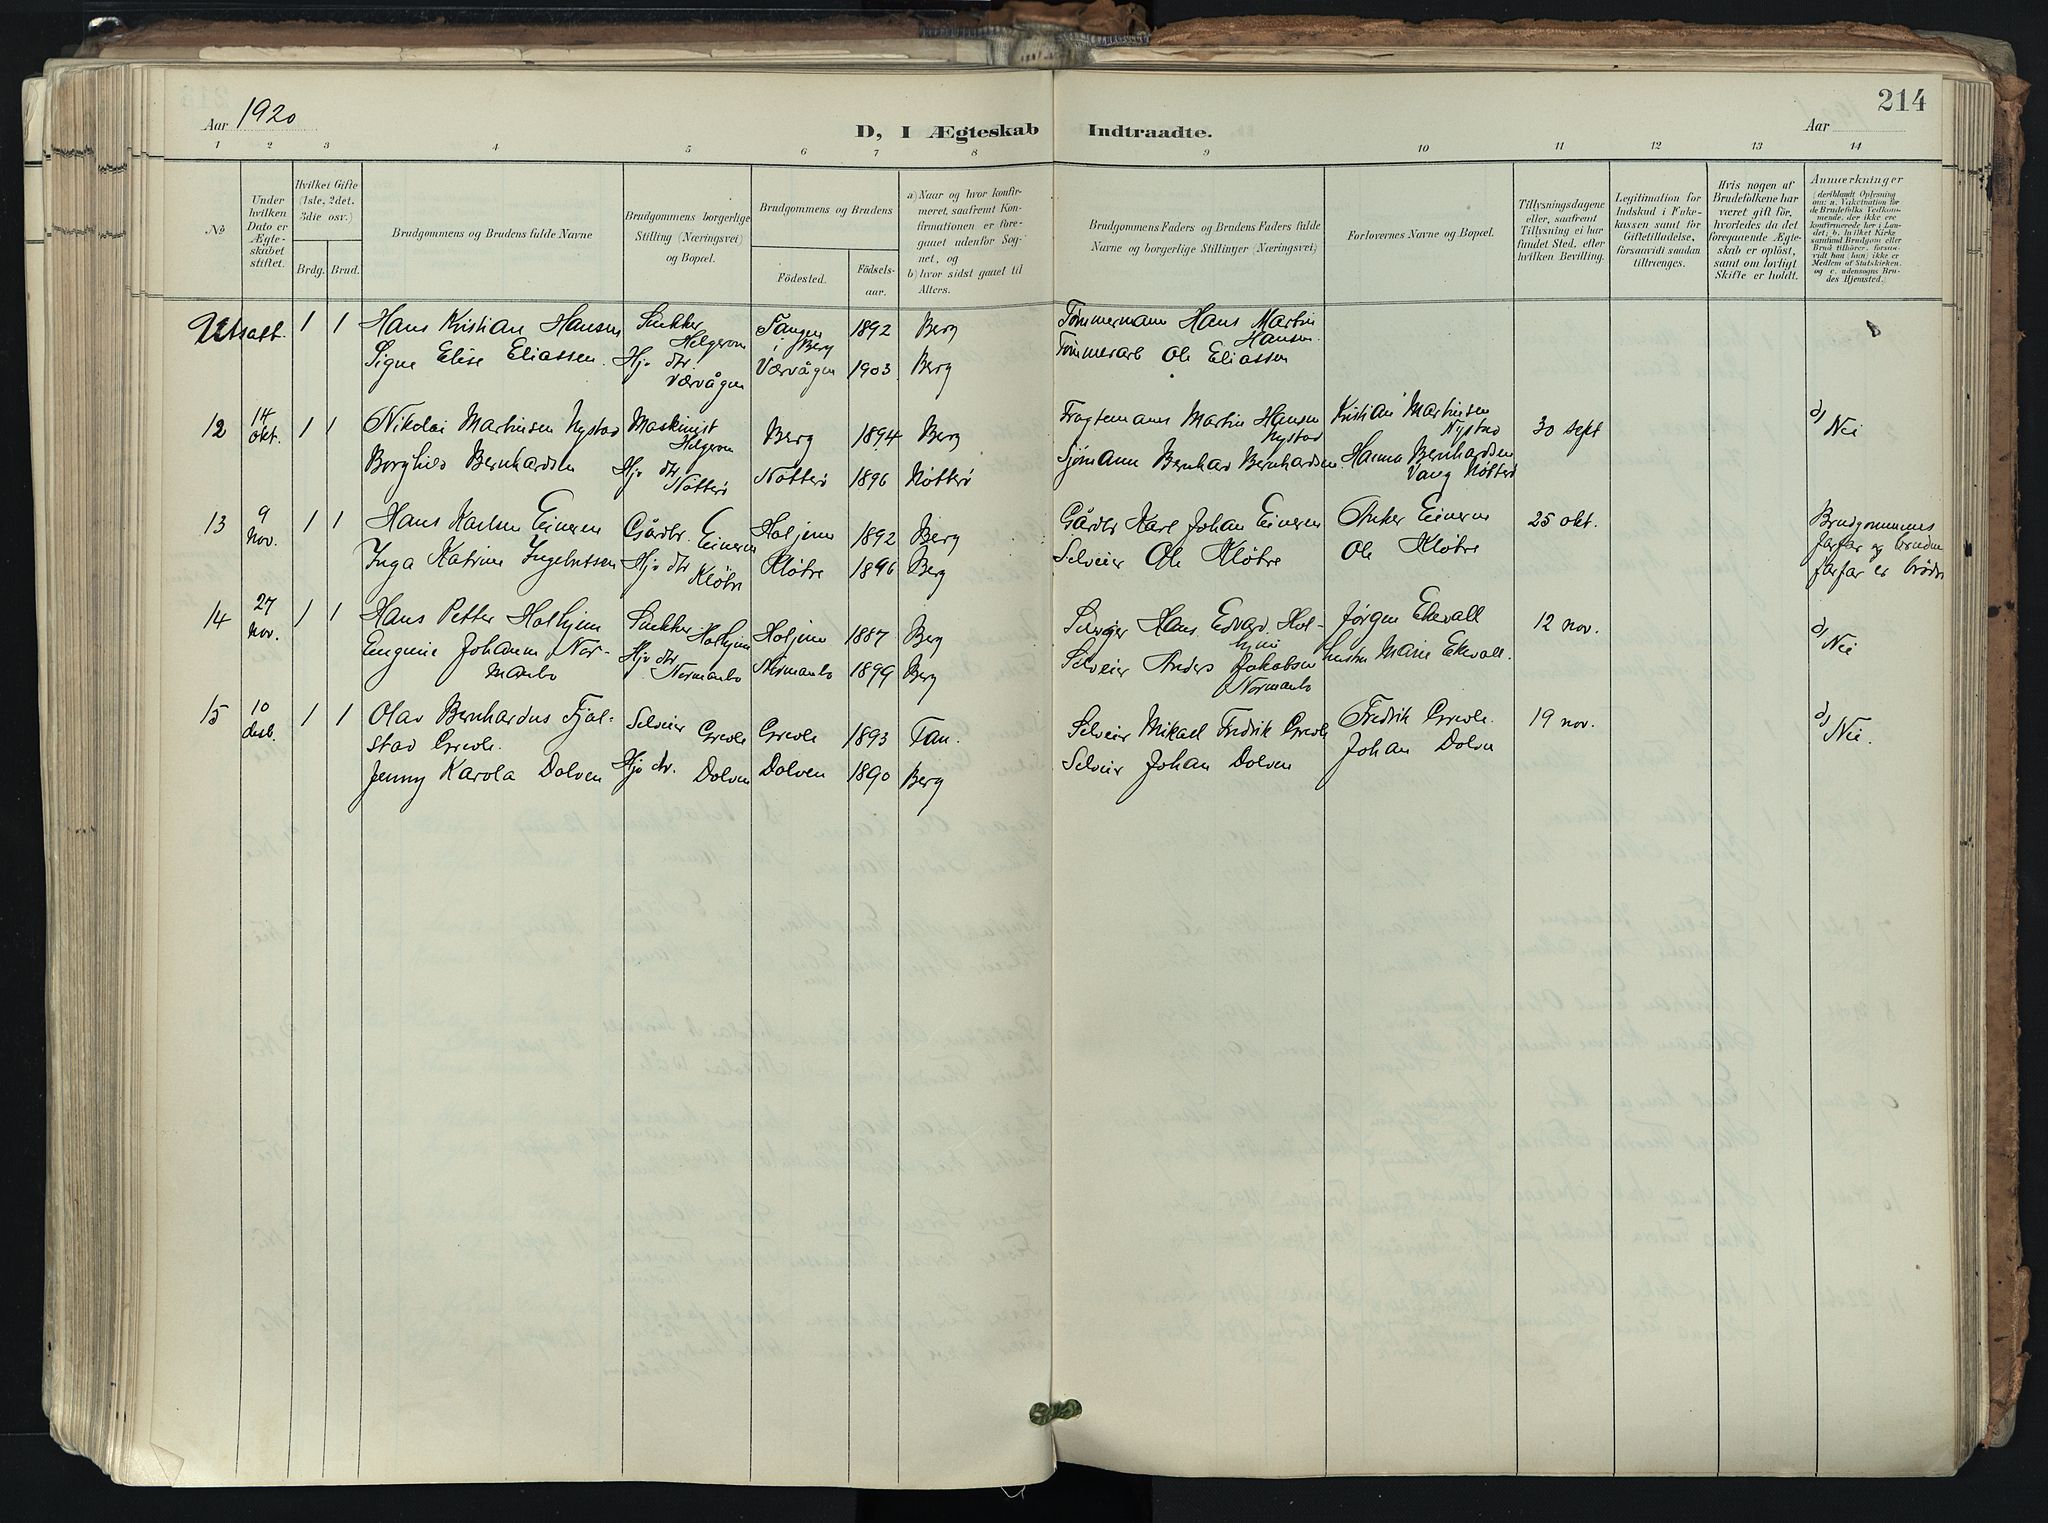 214
Aar 1920
D, I Ægteskab Indtraadte.
Aar
1 2 3 4 5 6 7 8 9 10 11 12 13 14
No
Under hvilken Dato er Ægteskabet stiftet.
Hvilket Gifte (1ste, 2det. 3die osv.)
Brdg. Brud.
Brudgommens og Brudens fulde Navne
Brudgommens borgerlige Stilling (Næringsvei) og Bopæl.
Brudgommens og Brudens
Födested.
Födselsaar.
a) Naar og hvor konfirmeret, saafremt Konfirmationen er foregaaet udenfor Sognet, og
b) hvor sidst gaaet til Alters.
Brudgommens Faders og Brudens Faders fulde Navne og borgerlige Stillinger (Næringsvei)
Forlovernes Navne og Bopæl.
Tillysningsdagene eller, saafremt Tillysning ei har fundet Sted, efter hvilken Bevilling.
Legitimation for Indskud i Enkekassen samt for Giftetilladelse, forsaavidt saadan tiltrænges.
Hvis nogen af Brudefolkene har været gift för, hvorledes da det foregaaende Ægteskab er oplöst, samt om lovligt Skifte er holdt.
Anmærkninger (deriblandt Oplysning om: a. Vakcination for de Brudefolks Vedkommende, der ikke ere konfirmerede her i Landet; b. hvilket Kirkesamfund Brudgom eller Brud tilhörer, forsaavidt han (hun) ikke er Medlem af Statskirken, og c. udensogns Brudes Hjemsted.
Utsatt. 1 1 Hans Kristian Hansen Snekker Helgeroa Tangen i Berg 1892 Berg Tømmermann Hans Martin Hansen.
Signe Elise Eliassen. Hjv dtr. Værvågen Værvågen 1903 Berg Tømmerarb Ole Eliassen
12 14 okt. 1 1 Nikolai Martinsen Nystad Maskinist Helgeroa Berg 1894 Berg Fragtemann Martin Hansen Nystad Kristian Martinsen Nystad 30 sept d) Nei
Borghild Bernhardsen Hjv dtr Nøtterø Nøtterø 1896 Nøtterø Sjømann Bernhard Bernhardsen Hanna Bernhardsen Vang Nøtterø
13 9 Nov. 1 1 Hans Karlsen Eineren Gårdbr. Eineren Holjem 1892 Berg Gårdbr Karl Johan Eineren Anker Eineren 25 okt. Brudgommens farfar og bruden farfar er brødre
Inga Katrine Ingebretsen Hjv dtr Kløtre Kløtre 1896 Berg Selveier Ole Kløtre Ole Kløtre
14 27 nov. 1 1 Hans Petter Holhjem Snekker Holhjem Holjem 1887 Berg Selveier Hans Edvard Holhjem Jørgen Ekevall 12 nov. d) Nei
Eugenie Johanne Normanbo Hjv dtr. Normanbo Normanbo 1899 Berg Selveier Anders Jakobsen Normanbo hustru Marie Ekevall.
15 10 desb. 1 1 Olav Bernhardus Fjälstad Grevle. Selveier Grevle Grevle 1893 Tan. Selveier Mikael Fredrik Grevle Fredrik Grevle. 19 nov. d) Nei.
Jenny Karola Dolven Hjv dtr. Dolven Dolven 1890 Berg Selveier Johan Dolven Johan Dolven